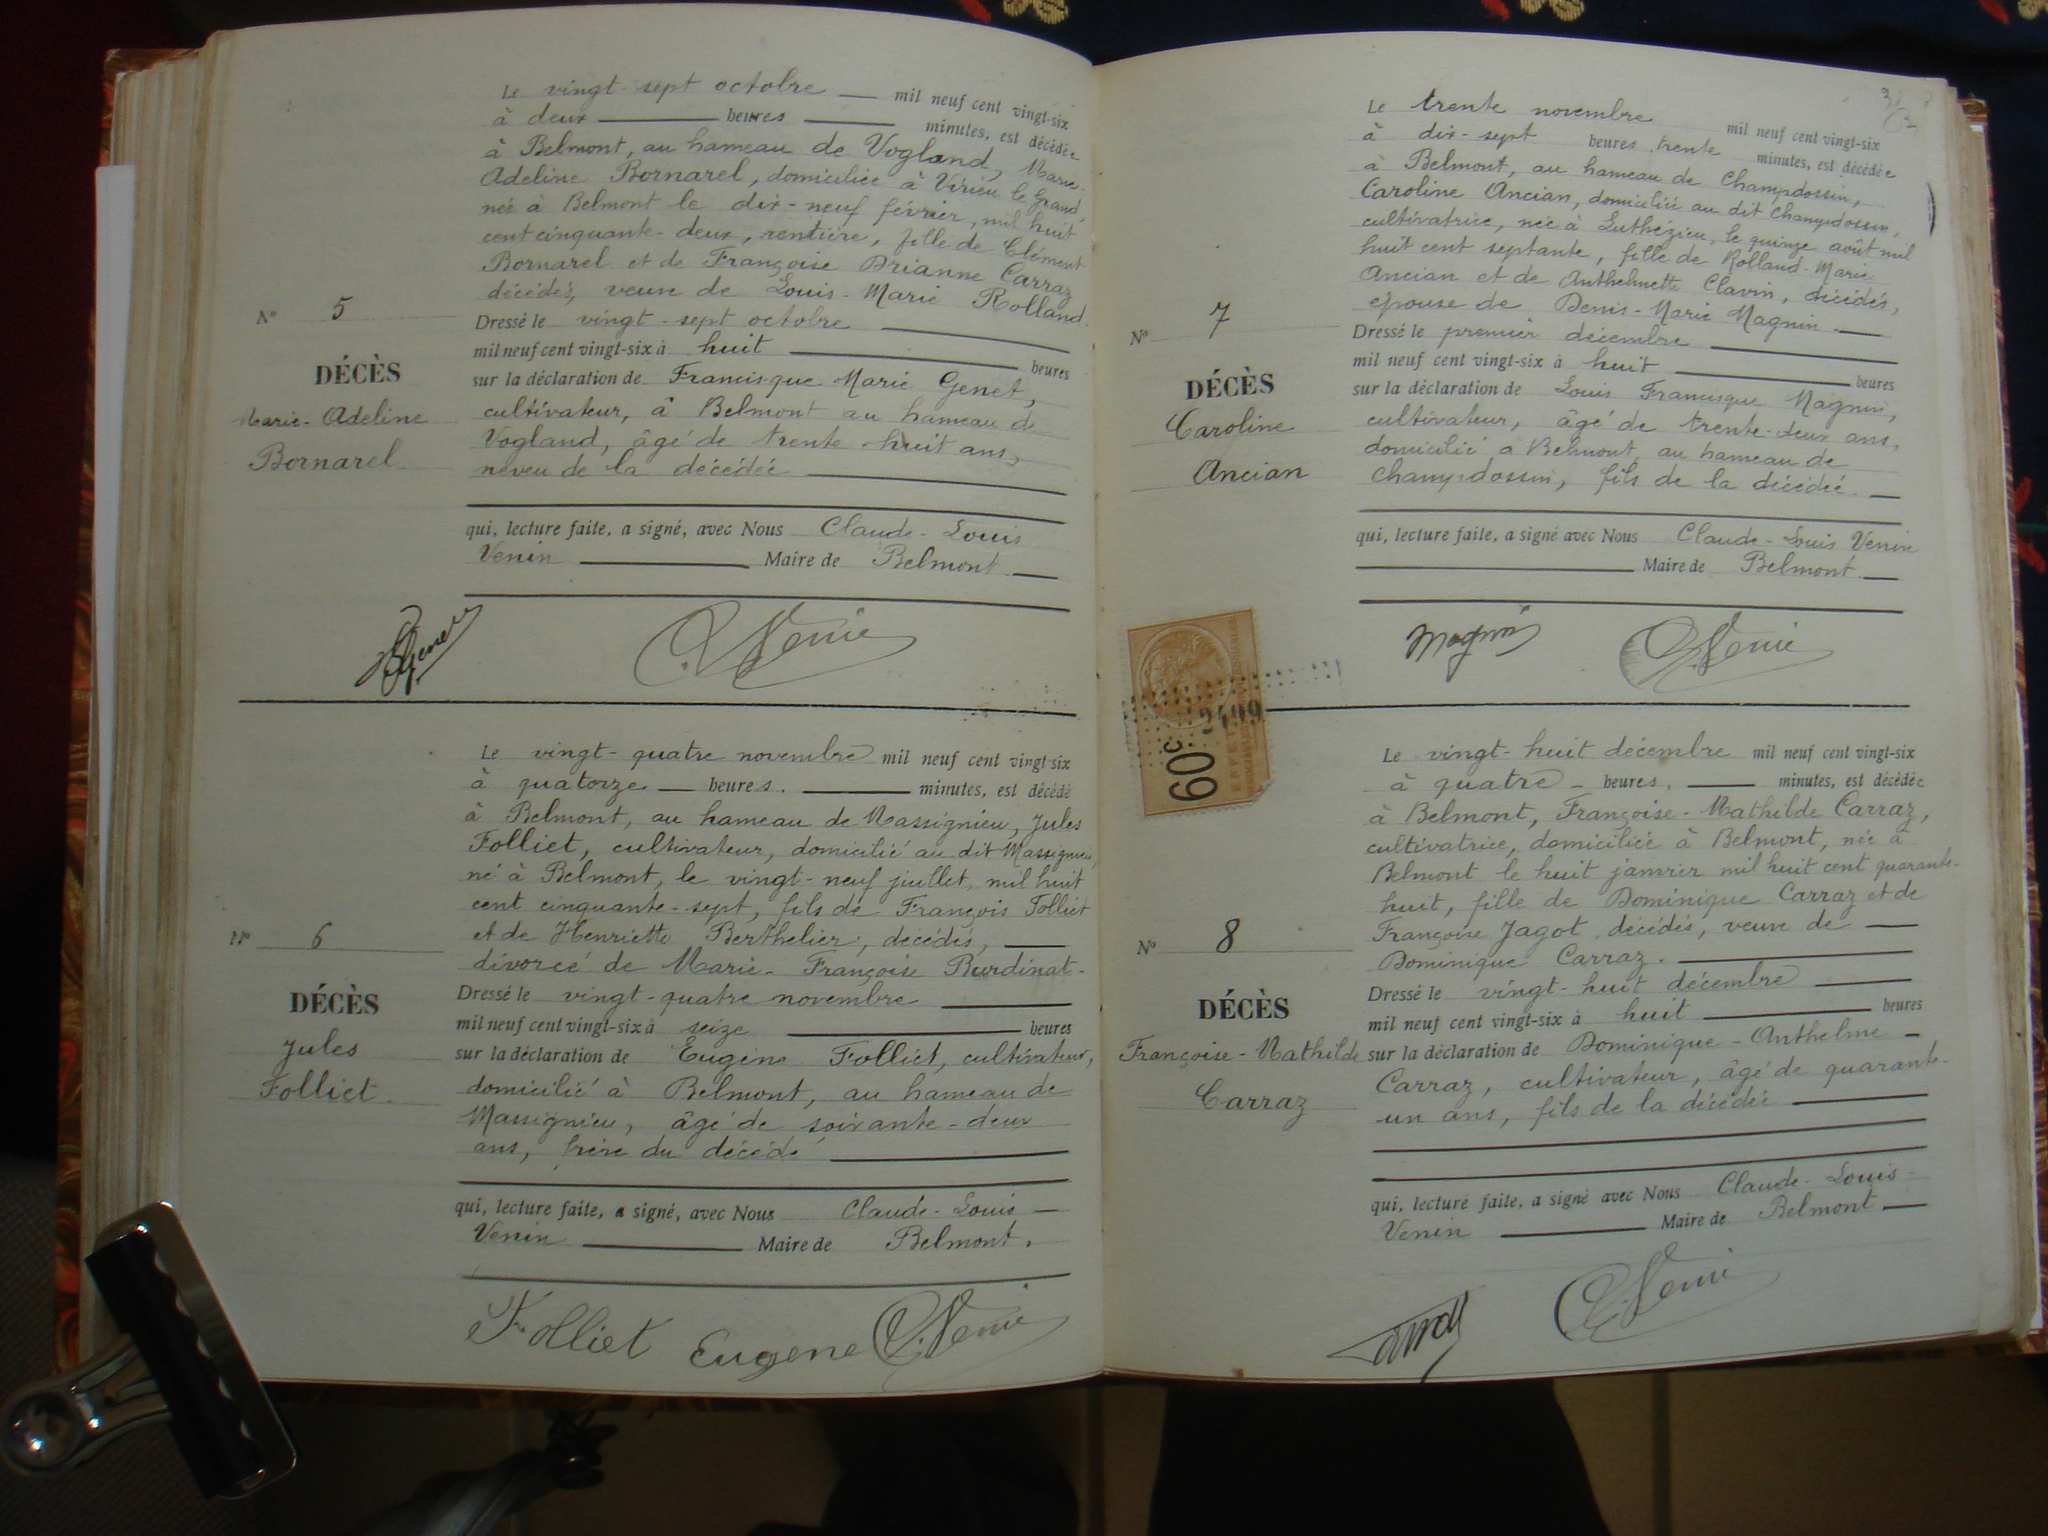 Le vingt-sept octobre — mil neuf cent vingt-six
à deux — heures — minutes, est décédée
à Belmont, au hameau de Vogland, Marie-
Adeline Bornarel, domiciliée à Virieu le Grand,
née à Belmont le dix-neuf février, mil huit
cent cinquante-deux, rentière, fille de Clément
Bornarel et de Françoise Drianne Carraz
décédés, veuve de Louis-Marie Rolland.
Nº 5
Dressé le vingt-sept octobre —
mil neuf cent vingt-six à huit — heures
DÉCÈS
Marie-Adeline
Bornarel
sur la déclaration de Francisque Marie Genet,
cultivateur, à Belmont au hameau de
Vogland, âgé de trente-huit ans,
neveu de la décédée —
qui, lecture faite, a signé, avec Nous Claude-Louis
Venin — Maire de Belmont. —
Genet
C. Venin
Le vingt-quatre novembre mil neuf cent vingt-six
à quatorze — heures. — minutes, est décédé
à Belmont, au hameau de Massignieu, Jules
Folliet, cultivateur, domicilié au dit Massignieu,
né à Belmont, le vingt-neuf juillet, mil huit
cent cinquante-sept, fils de François Folliet
et de Henriette Berthelier, décédés, —
divorcé de Marie-Françoise Burdinat-
Nº 6
Dressé le vingt-quatre novembre —
mil neuf cent vingt-six à seize — heures
DÉCÈS
Jules
Folliet.
sur la déclaration de Eugène Folliet, cultivateur,
domicilié à Belmont, au hameau de
Massignieu, âgé de soixante-deux
ans, frère du décédé —
qui, lecture faite, a signé, avec Nous Claude-Louis —
Venin — Maire de Belmont.
Folliet Eugene C. Venin
Le trente novembre mil neuf cent vingt-six
à dix-sept heures trente minutes, est décédée
à Belmont, au hameau de Champdossin,
Caroline Ancian, domiciliée au dit Champdossin,
cultivatrice, née à Luthézieu, le quinze août mil
huit cent septante, fille de Rolland-Marie
Ancian et de Anthelmette Clavin, décédés,
épouse de Denis-Marie Magnin —
Nº 7
Dressé le premier décembre —
mil neuf cent vingt-six à huit — heures
DÉCÈS
Caroline
Ancian
sur la déclaration de Louis Francisque Magnin,
cultivateur, âgé de trente-deux ans,
domicilié à Belmont, au hameau de
Champdossin, fils de la décédée. —
qui, lecture faite, a signé avec Nous Claude-Louis Venin
— Maire de Belmont. —
Magnin
C. Venin
2499
60c
Le vingt-huit décembre mil neuf cent vingt-six
à quatre — heures. — minutes, est décédée
à Belmont, Françoise-Mathilde Carraz,
cultivatrice, domiciliée à Belmont, née à
Belmont le huit janvier mil huit cent quarante-
huit, fille de Dominique Carraz et de
Françoise Jagot décédés, veuve de —
Dominique Carraz. —
Nº 8
Dressé le vingt-huit décembre —
mil neuf cent vingt-six à huit — heures
DÉCÈS
Françoise-Mathilde
Carraz
sur la déclaration de Dominique-Anthelme —
Carraz, cultivateur, âgé de quarante-
un ans, fils de la décédée —
qui, lecture faite, a signé avec Nous Claude-Louis-
Venin — Maire de Belmont —
C. Venin